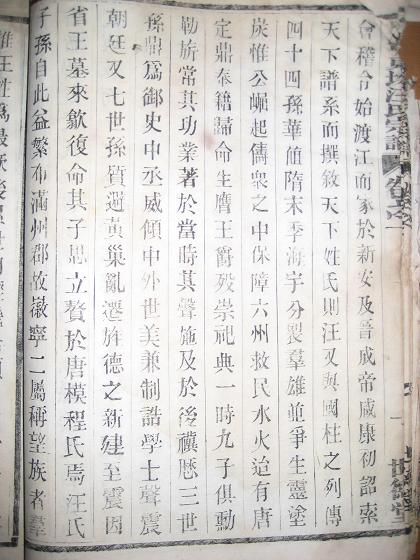 會稽令始渡江而家於新安及晉成帝咸康初詔索
天下譜系而撰敘天下姓氏則汪又與國柱之列傳
四十四孫華値隋末季海宇分裂羣雄並爭生靈塗
炭惟公崛起儔衆之中保障六州救民水火迨有唐
定鼎奉籍歸命生膺王爵歿崇祀典一時九子俱動
勒旂常其功業著於當時其聲施及於後禩歷三世
孫鼎爲御史中丞威傾中外世美兼制誥學士聲震
朝廷又七世孫質避黃巢亂遷旌德之新建至震因
省王墓來歙復命其子思立贅於唐模程氏焉汪氏
子孫自此益繁布滿州郡故徽寧二屬稱望族者羣
推王姓爲最